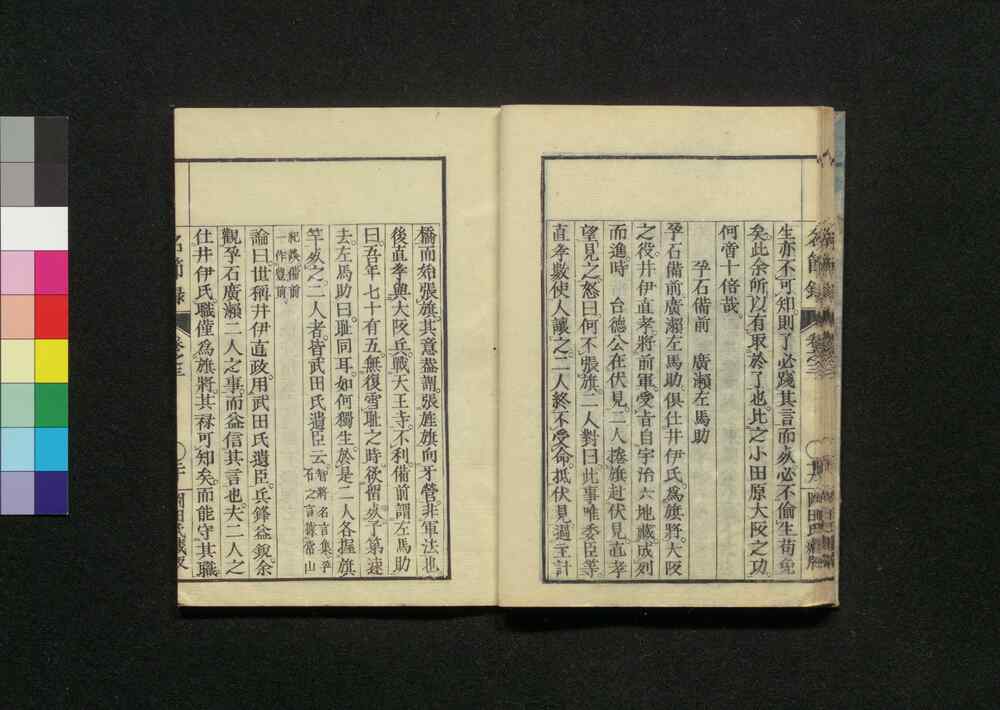 生亦不可知則了必踐其言而以必不偷生苟免
矣此余所以有取於了也比之小田原大阪之功
何啻十倍哉
孕石備前　廣瀬左馬助
孕石備前廣瀬左馬助俱仕井伊氏爲旗將大阪
之役井伊直孝將前軍愛者自宇治六地藏成列
而進時　台德公在伏見二人捲旗赴伏見直孝
望見之怒曰何不張旗二人對曰此事唯委臣等
直孝數使人讓之二人終不受命抵伏見過主計
橋而始張旗其意蓋謂張旌旗向牙營非軍法也
後直孝與大阪兵戰天王寺不利備前謂左馬助
曰吾年七十有五無復雪耻之時後留以了第速
去左馬助曰耻同耳如何獨生於是二人各握旗
竿以之二人者皆武田氏遺臣云智將名言集孕石之言爲常山
紀談備前一作豊前
論曰世稱井伊直政用武田氏遺臣兵鋒益銳余
觀孕石廣瀬二人之事而益信其言也夫二人之
仕井伊氏職僅爲旗將其禄可知矣而能守其職
名節録　卷之三
岡田氏藏版